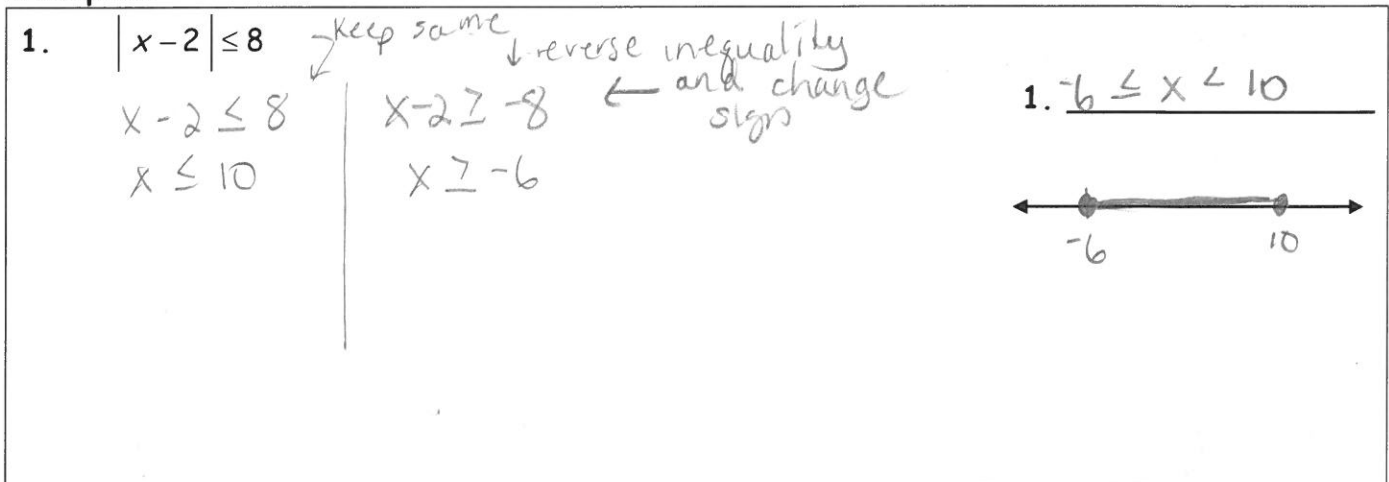 1. |x-2| ≤ 8
Keep same
reverse inequality
and change
signs
x-2 ≤ 8
x-2 ≥ -8
x ≤ 10
x ≥ -6
1. -6 ≤ x < 10
-6
10